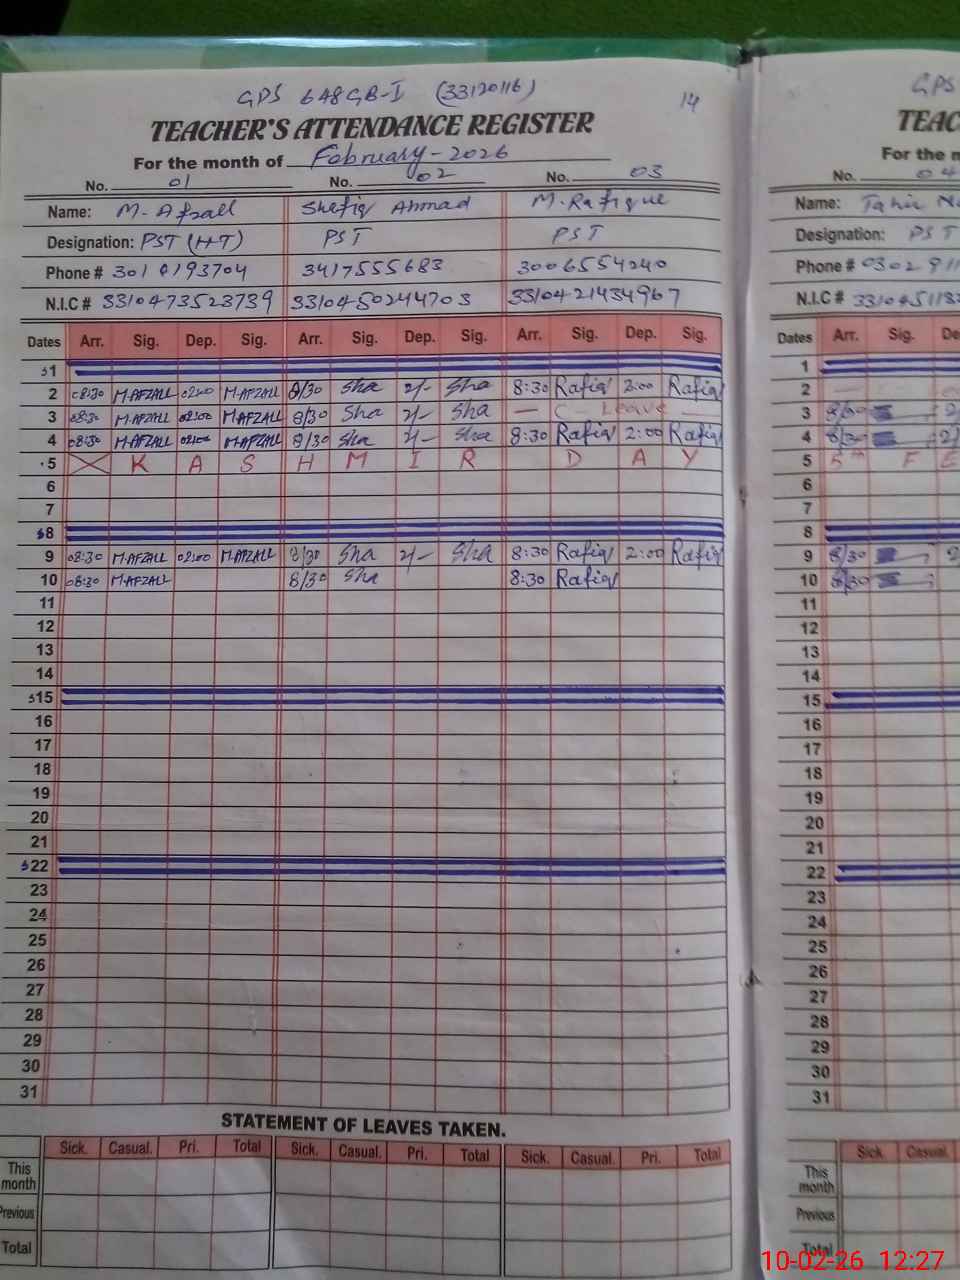 GPS 648GB-I (33120116) 14
TEACHER'S ATTENDANCE REGISTER
For the month of February-2026
No. 01 No. 02 No. 03
Name: M-Afzall Shefiq Ahmad M.Rafique
Designation: PST (HT) PST PST
Phone # 301 0193704 3417555683 3006554240
N.I.C # 3310473523739 3310450244703 3310421434967
Dates Arr. Sig. Dep. Sig. Arr. Sig. Dep. Sig. Arr. Sig. Dep. Sig.
S1
2 08:30 M.AFZALL 02:00 M.AFZALL 8/30 Sha 2/- Sha 8:30 Rafiq 2:00 Rafiq
3 08:30 M.AFZALL 02:00 M.AFZALL 8/30 Sha 2/- Sha — C - Leave —
4 08:30 M.AFZALL 02:00 M.AFZALL 8/30 Sha 2/- Sha 8:30 Rafiq 2:00 Rafiq
5 K A S H M I R D A Y
6
7
S8
9 08:30 M.AFZALL 02:00 M.AFZALL 8/30 Sha 2/- Sha 8:30 Rafiq 2:00 Rafiq
10 08:30 M.AFZALL 8/30 Sha 8:30 Rafiq
11
12
13
14
S15
16
17
18
19
20
21
S22
23
24
25
26
27
28
29
30
31
STATEMENT OF LEAVES TAKEN.
Sick. Casual. Pri. Total Sick. Casual. Pri. Total Sick. Casual. Pri. Total
This month
Previous
Total
GPS
TEAC
For the m
No. 04
Name: Tahir
Designation: PST
Phone # 0302 911
N.I.C # 33104511
Dates Arr. Sig. De
1
2
3 8/30
4 8/30
5 5th F E
6
7
8
9 8/30
10 8/30
11
12
13
14
15
16
17
18
19
20
21
22
23
24
25
26
27
28
29
30
31
Sick. Casual.
This month
Previous
Total
10-02-26 12:27